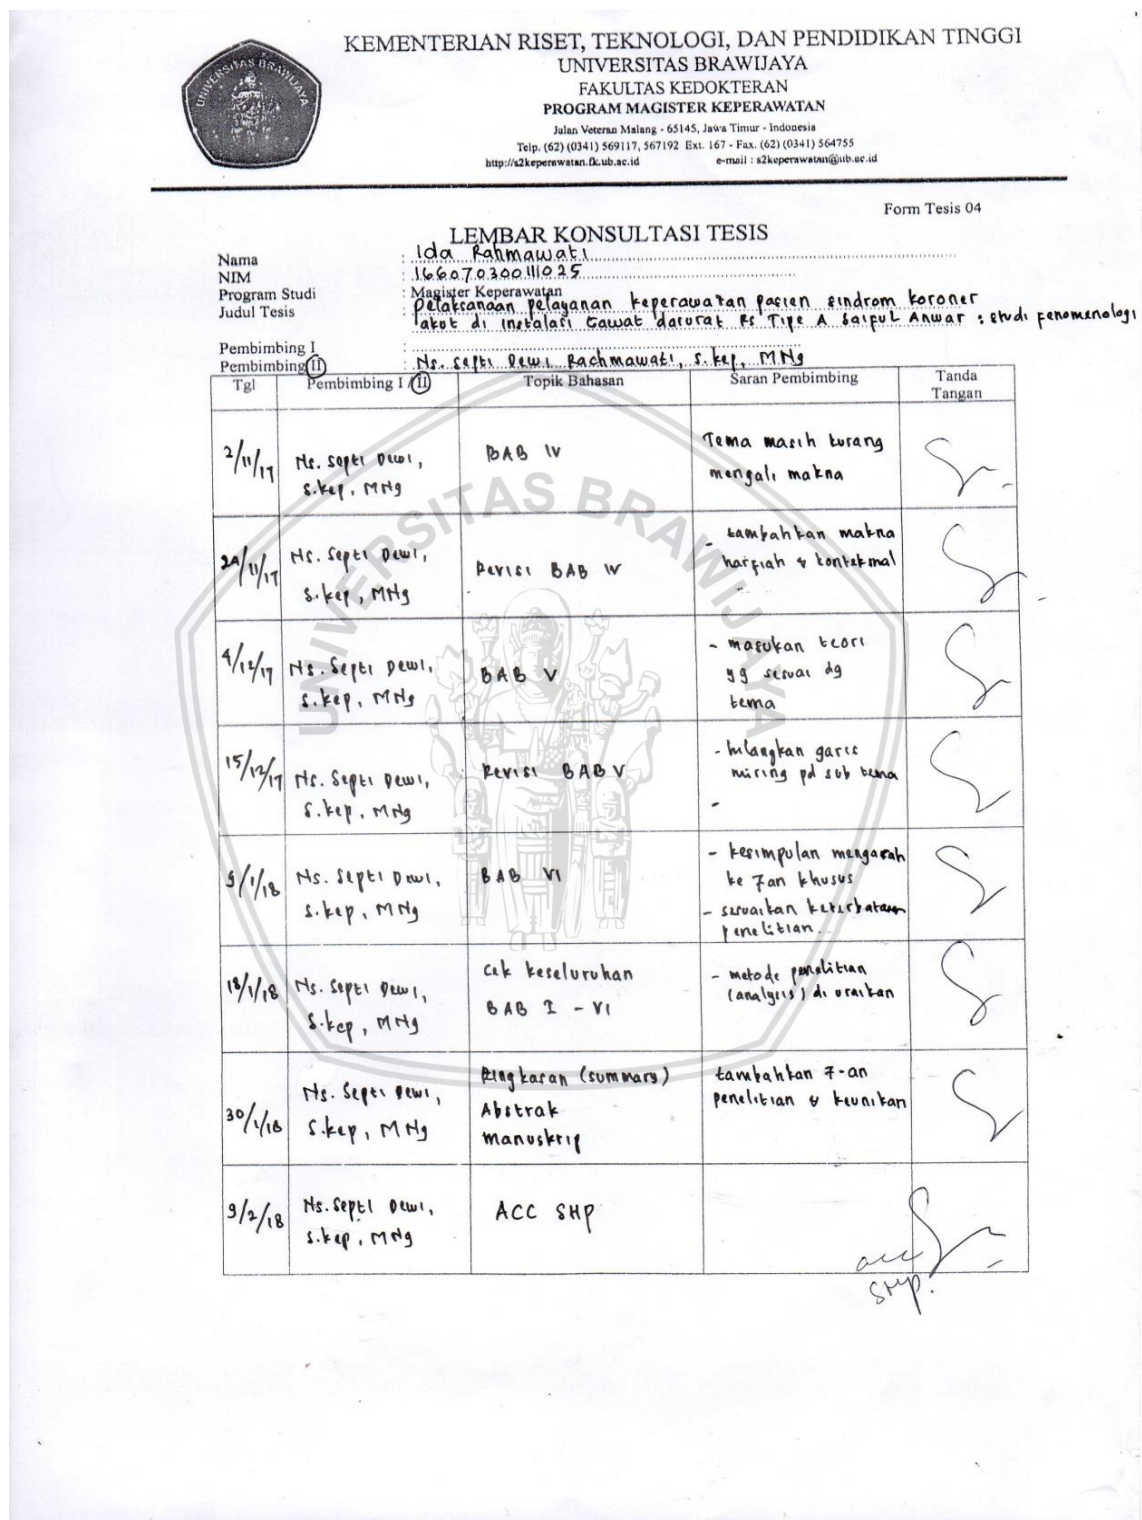 KEMENTERIAN RISET, TEKNOLOGI, DAN PENDIDIKAN TINGGI
UNIVERSITAS BRAWIJAYA
FAKULTAS KEDOKTERAN
PROGRAM MAGISTER KEPERAWATAN
Jalan Veteran Malang - 65145, Jawa Timur - Indonesia
Telp. (62) (0341) 569117, 567192 Ext. 167 - Fax. (62) (0341) 564755
http://s2keperawatan.fk.ub.ac.id e-mail : s2keperawatan@ub.ac.id
UNIVERSITAS BRAWIJAYA
Form Tesis 04
LEMBAR KONSULTASI TESIS
Nama : Ida Rahmawati
NIM : 166070300111025
Program Studi : Magister Keperawatan
Judul Tesis : Pelaksanaan pelayanan keperawatan pasien sindrom koroner
akut di instalasi Gawat darurat RS Tipe A Saiful Anwar : studi fenomenologi
Pembimbing I :
Pembimbing II : Ns. Septi Dewi Rachmawati, S.kep, MNg
Tgl Pembimbing I / II Topik Bahasan Saran Pembimbing Tanda
Tangan
2/11/17 Ns. Septi Dewi, BAB IV Tema masih kurang
S.kep, MNg mengali makna
24/11/17 Ns. Septi Dewi, Revisi BAB IV - tambahkan makna
S.kep, MNg harfiah & kontekstual
4/12/17 Ns. Septi Dewi, BAB V - masukan teori
S.kep, MNg yg sesuai dg
tema
15/12/17 Ns. Septi Dewi, Revisi BAB V - hilangkan garis
S.kep, MNg miring pd sub tema
-
9/1/18 Ns. Septi Dewi, BAB VI - kesimpulan mengarah
S.kep, MNg ke 7an khusus
- sesuaikan keterbatasan
penelitian
18/1/18 Ns. Septi Dewi, Cek keseluruhan - metode penelitian
S.kep, MNg BAB I - VI (analysis) di uraikan
30/1/18 Ns. Septi Dewi, Ringkasan (summary) tambahkan 7-an
S.kep, MNg Abstrak penelitian & keunikan
manuskrip
9/2/18 Ns. Septi Dewi, ACC SHP
S.kep, MNg
acc
SHP.
UNIVERSITAS BRAWIJAYA